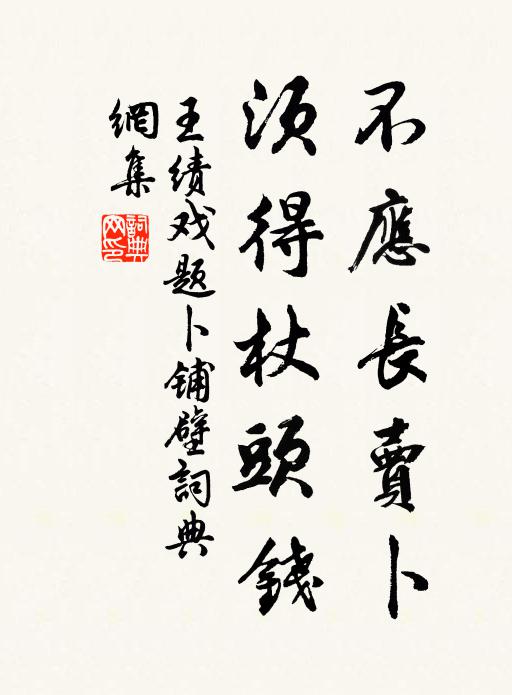 不應長賣卜
須得杖頭錢
王绩戏题卜铺壁詞典
網集
詞典網印